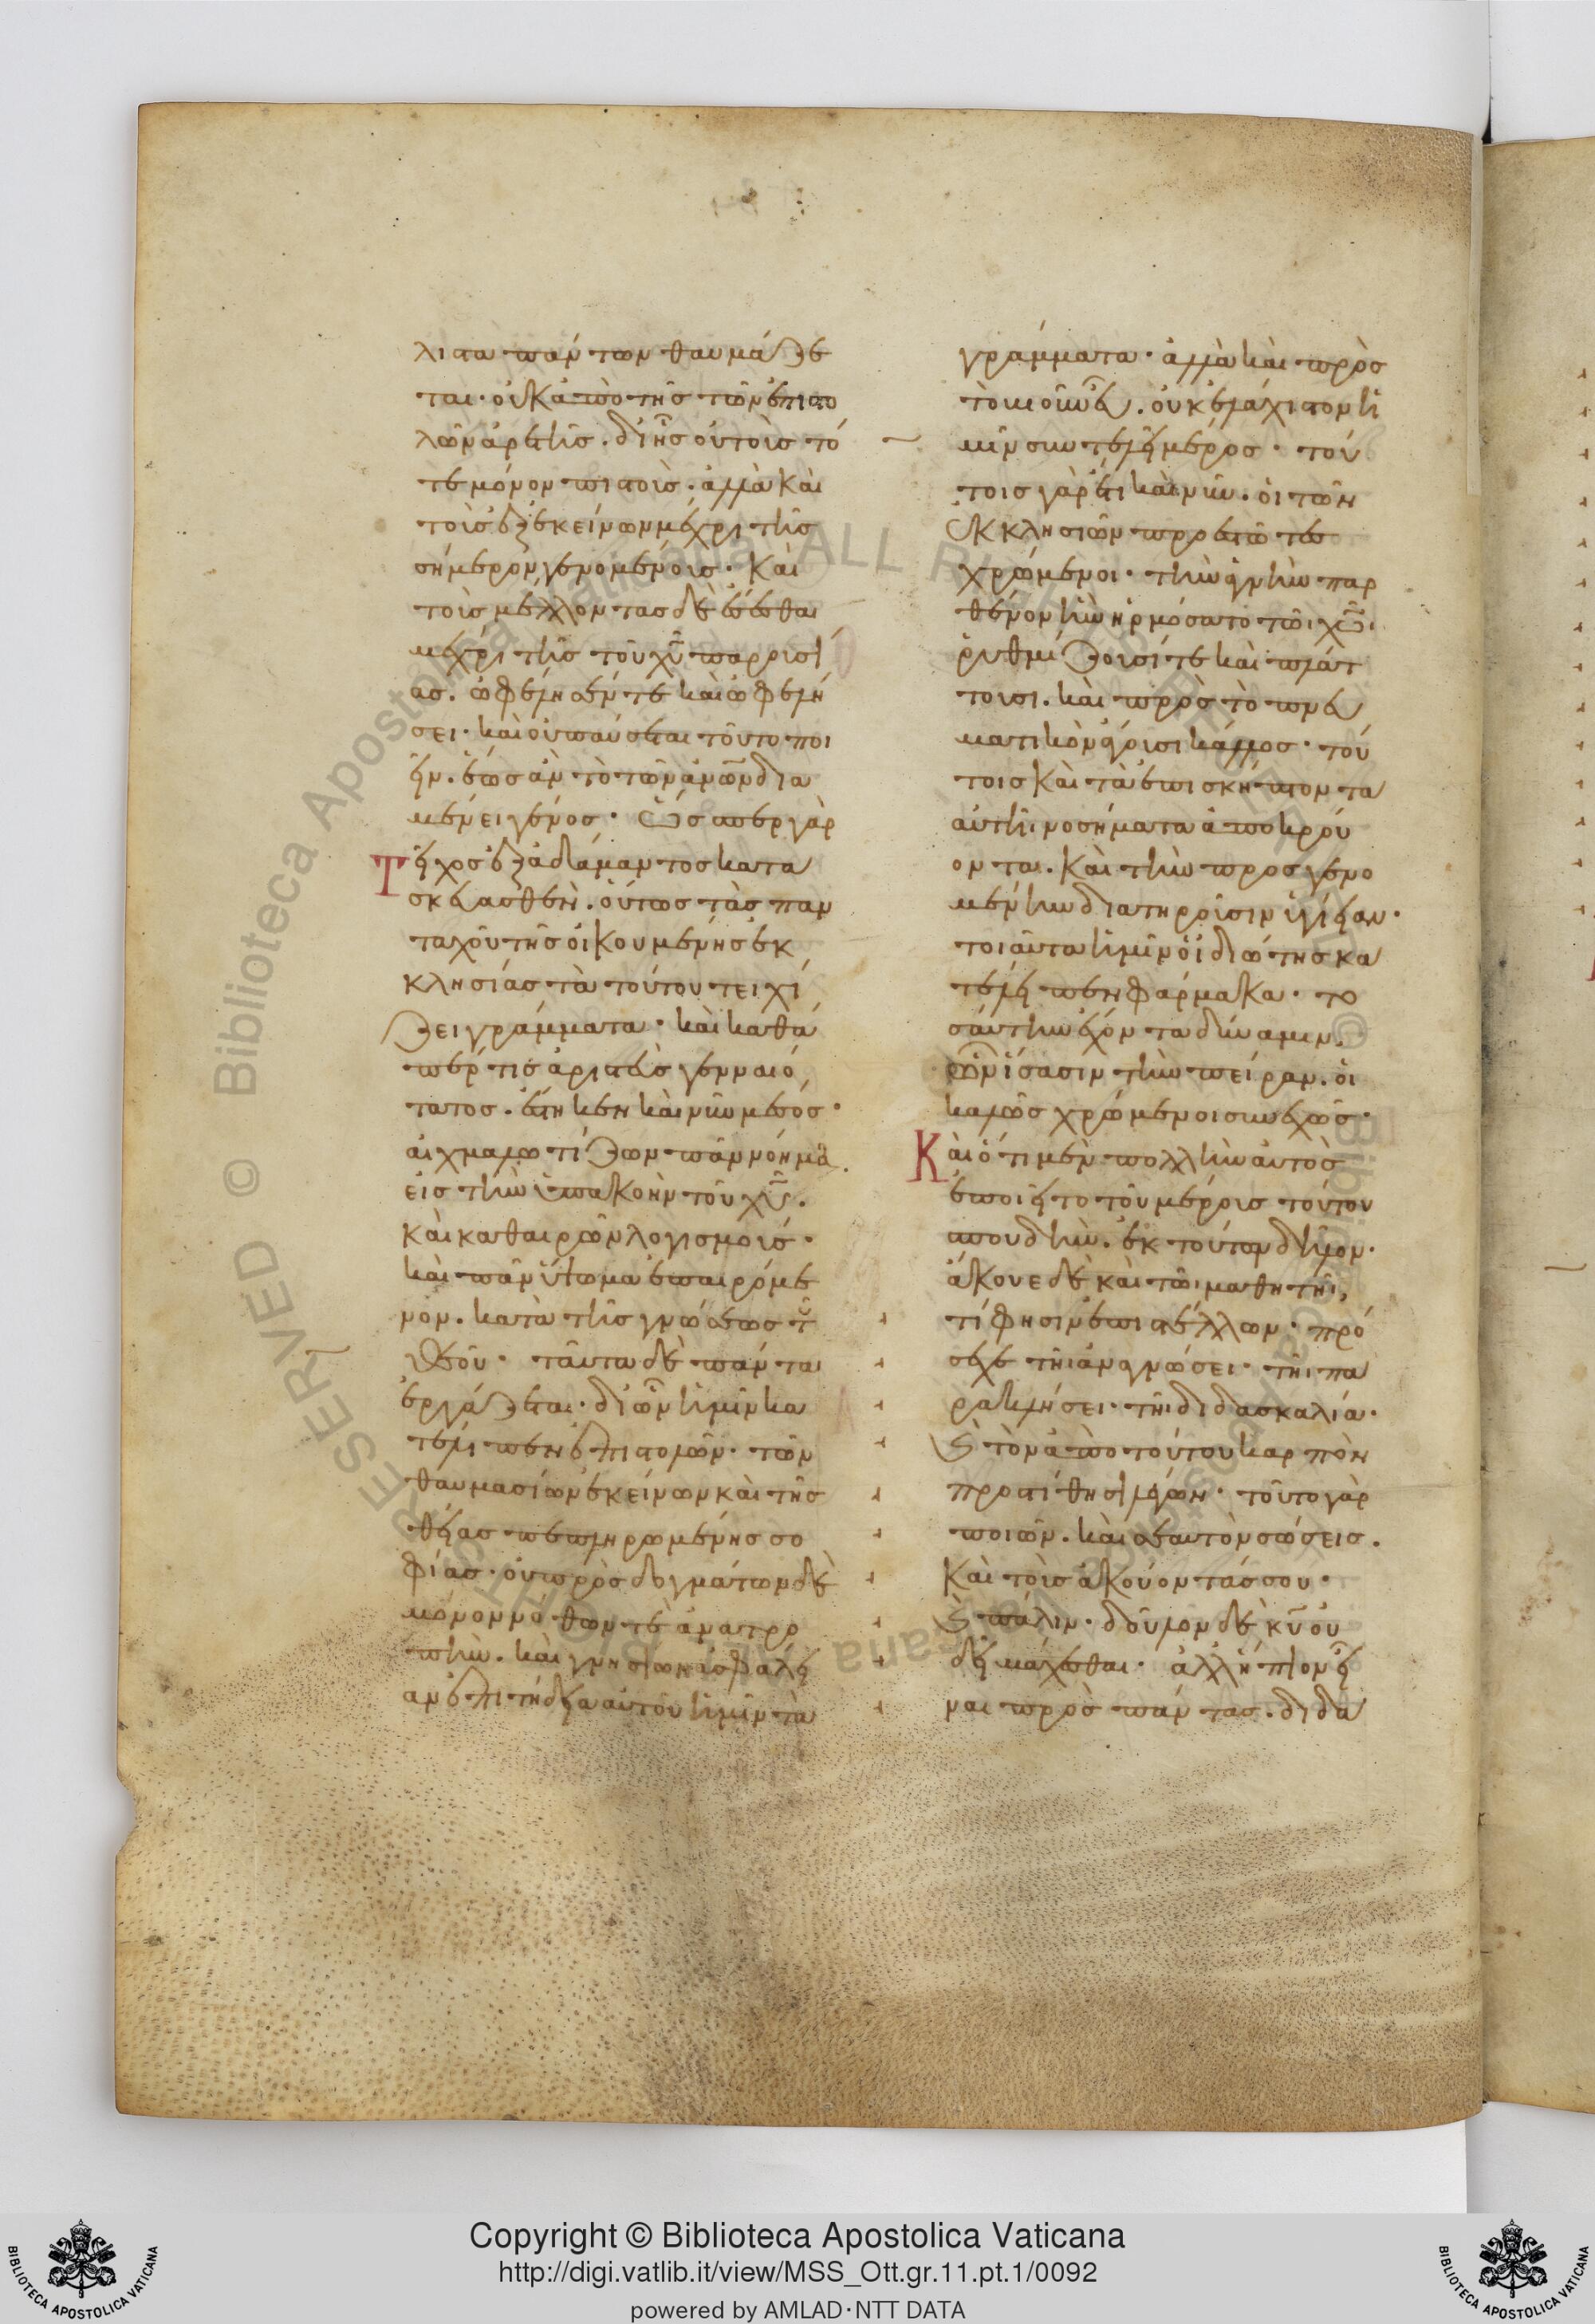 λιστα πάντων θαυμάζε
ται· οὐκ ἀπὸ τῆς τῶν ἐπιστο
λῶν ἀρετῆς. δι' ἧς οὐ τοῖς τό
τε μόνον πιστοῖς· ἀλλὰ καὶ
τοῖς ἐξ ἐκείνων μέχρι τῆς
σήμερον γενομένοις· καὶ
τοῖς μέλλοντας δὲ ἔσεσθαι
μέχρι τῆς τοῦ χυ παρουσί
ας. ὠφέλησέν τε καὶ ὠφελή
σει· καὶ οὐ παύσεται τοῦτο ποι
ῶν. ἕως ἂν τὸ τῶν ἀνων δια
μένει γένος· Ὥσπερ γὰρ
τεῖχος ἐξ ἀδάμαντος κατα
σκευασθὲν. οὕτως τὰς παν
ταχοῦ τῆς οἰκουμένης ἐκ
κλησίας τὰ τούτου τειχί
ζει γράμματα· καὶ καθά
περ τις ἀριστεὺς γενναιό
τατος. ἕστηκεν καὶ νῦν μέσος·
αἰχμαλωτίζων πᾶν νόημα
εἰς τὴν ὑπακοὴν τοῦ χυ.
καὶ καθαιρῶν λογισμούς·
καὶ πᾶν ὕψωμα ἐπαιρόμε
νον. κατὰ τῆς γνώσεως τοῦ
θεοῦ· ταῦτα δὲ πάντα
ἐργάζεται· δι' ὧν ἡμῖν κα
τέλιπεν ἐπιστολῶν· τῶν
θαυμασίων ἐκείνων καὶ τῆς
θείας πεπληρωμένης σο
φίας· οὐ πρὸς δογμάτων δὲ
μόνον νόθων τὲ ἀνατρο
πὴν. καὶ γνησίων ἀσφάλει
αν ἐπιτήδεια αὐτοῦ ἡμῖν τὰ
γράμματα· ἀλλὰ καὶ πρὸς
τὸ βιοῦν εὖ. οὐκ ἐλάχιστον ἡ
μῖν συντελεῖ μέρος· τού
τοις γὰρ ἔτι καὶ νῦν. οἱ τῶν
ἐκκλησιῶν προεστῶτες
χρώμενοι· τὴν ἁγνὴν παρ
θένον ἣν ἡρμόσατο τῶι χωι
ῥυθμίζουσί τε καὶ πλάτ
τουσι. καὶ πρὸς τὸ πνευ
ματικὸν ἄγουσι κάλλος· τού
τοις καὶ τὰ ἐπισκήπτοντα
αὐτῆι νοσήματα ἀποκρού
ονται. καὶ τὴν προσγενο
μένην διατηροῦσιν ὑγείαν·
τοιαῦτα ἡμῖν ὁ ἰδιώτης κα
τέλειπεν φάρμακα· το
σαύτην ἔχοντα δύναμιν.
ὧν ἴσασιν τὴν πεῖραν. οἱ
καλῶς χρώμενοι συνεχῶς·
Καὶ ὅτι μὲν πολλὴν αὐτὸς
ἐποιεῖτο τοῦ μέρους τούτου
σπουδὴν. ἐκ τούτων δῆλον·
ἄκουε δὲ καὶ τῶι μαθητῆι,
τί φησιν ἐπιστέλλων· πρό
σεχε τῆι ἀναγνώσει· τῆι πα
ρακλήσει· τῆι διδασκαλίᾳ·
Καὶ τὸν ἀπὸ τούτου καρπὸν
προστίθησι λέγων· τοῦτο γὰρ
ποιῶν. καὶ σεαυτὸν σώσεις.
καὶ τοῖς ἀκούοντάς σου·
Καὶ πάλιν· δοῦλον δὲ κυ οὐ
δεῖ μάχεσθαι· ἀλλ' ἤπιον εἶ
ναι πρὸς πάντας. διδα
Copyright © Biblioteca Apostolica Vaticana
http://digi.vatlib.it/view/MSS_Ott.gr.11.pt.1/0092
powered by AMLAD·NTT DATA